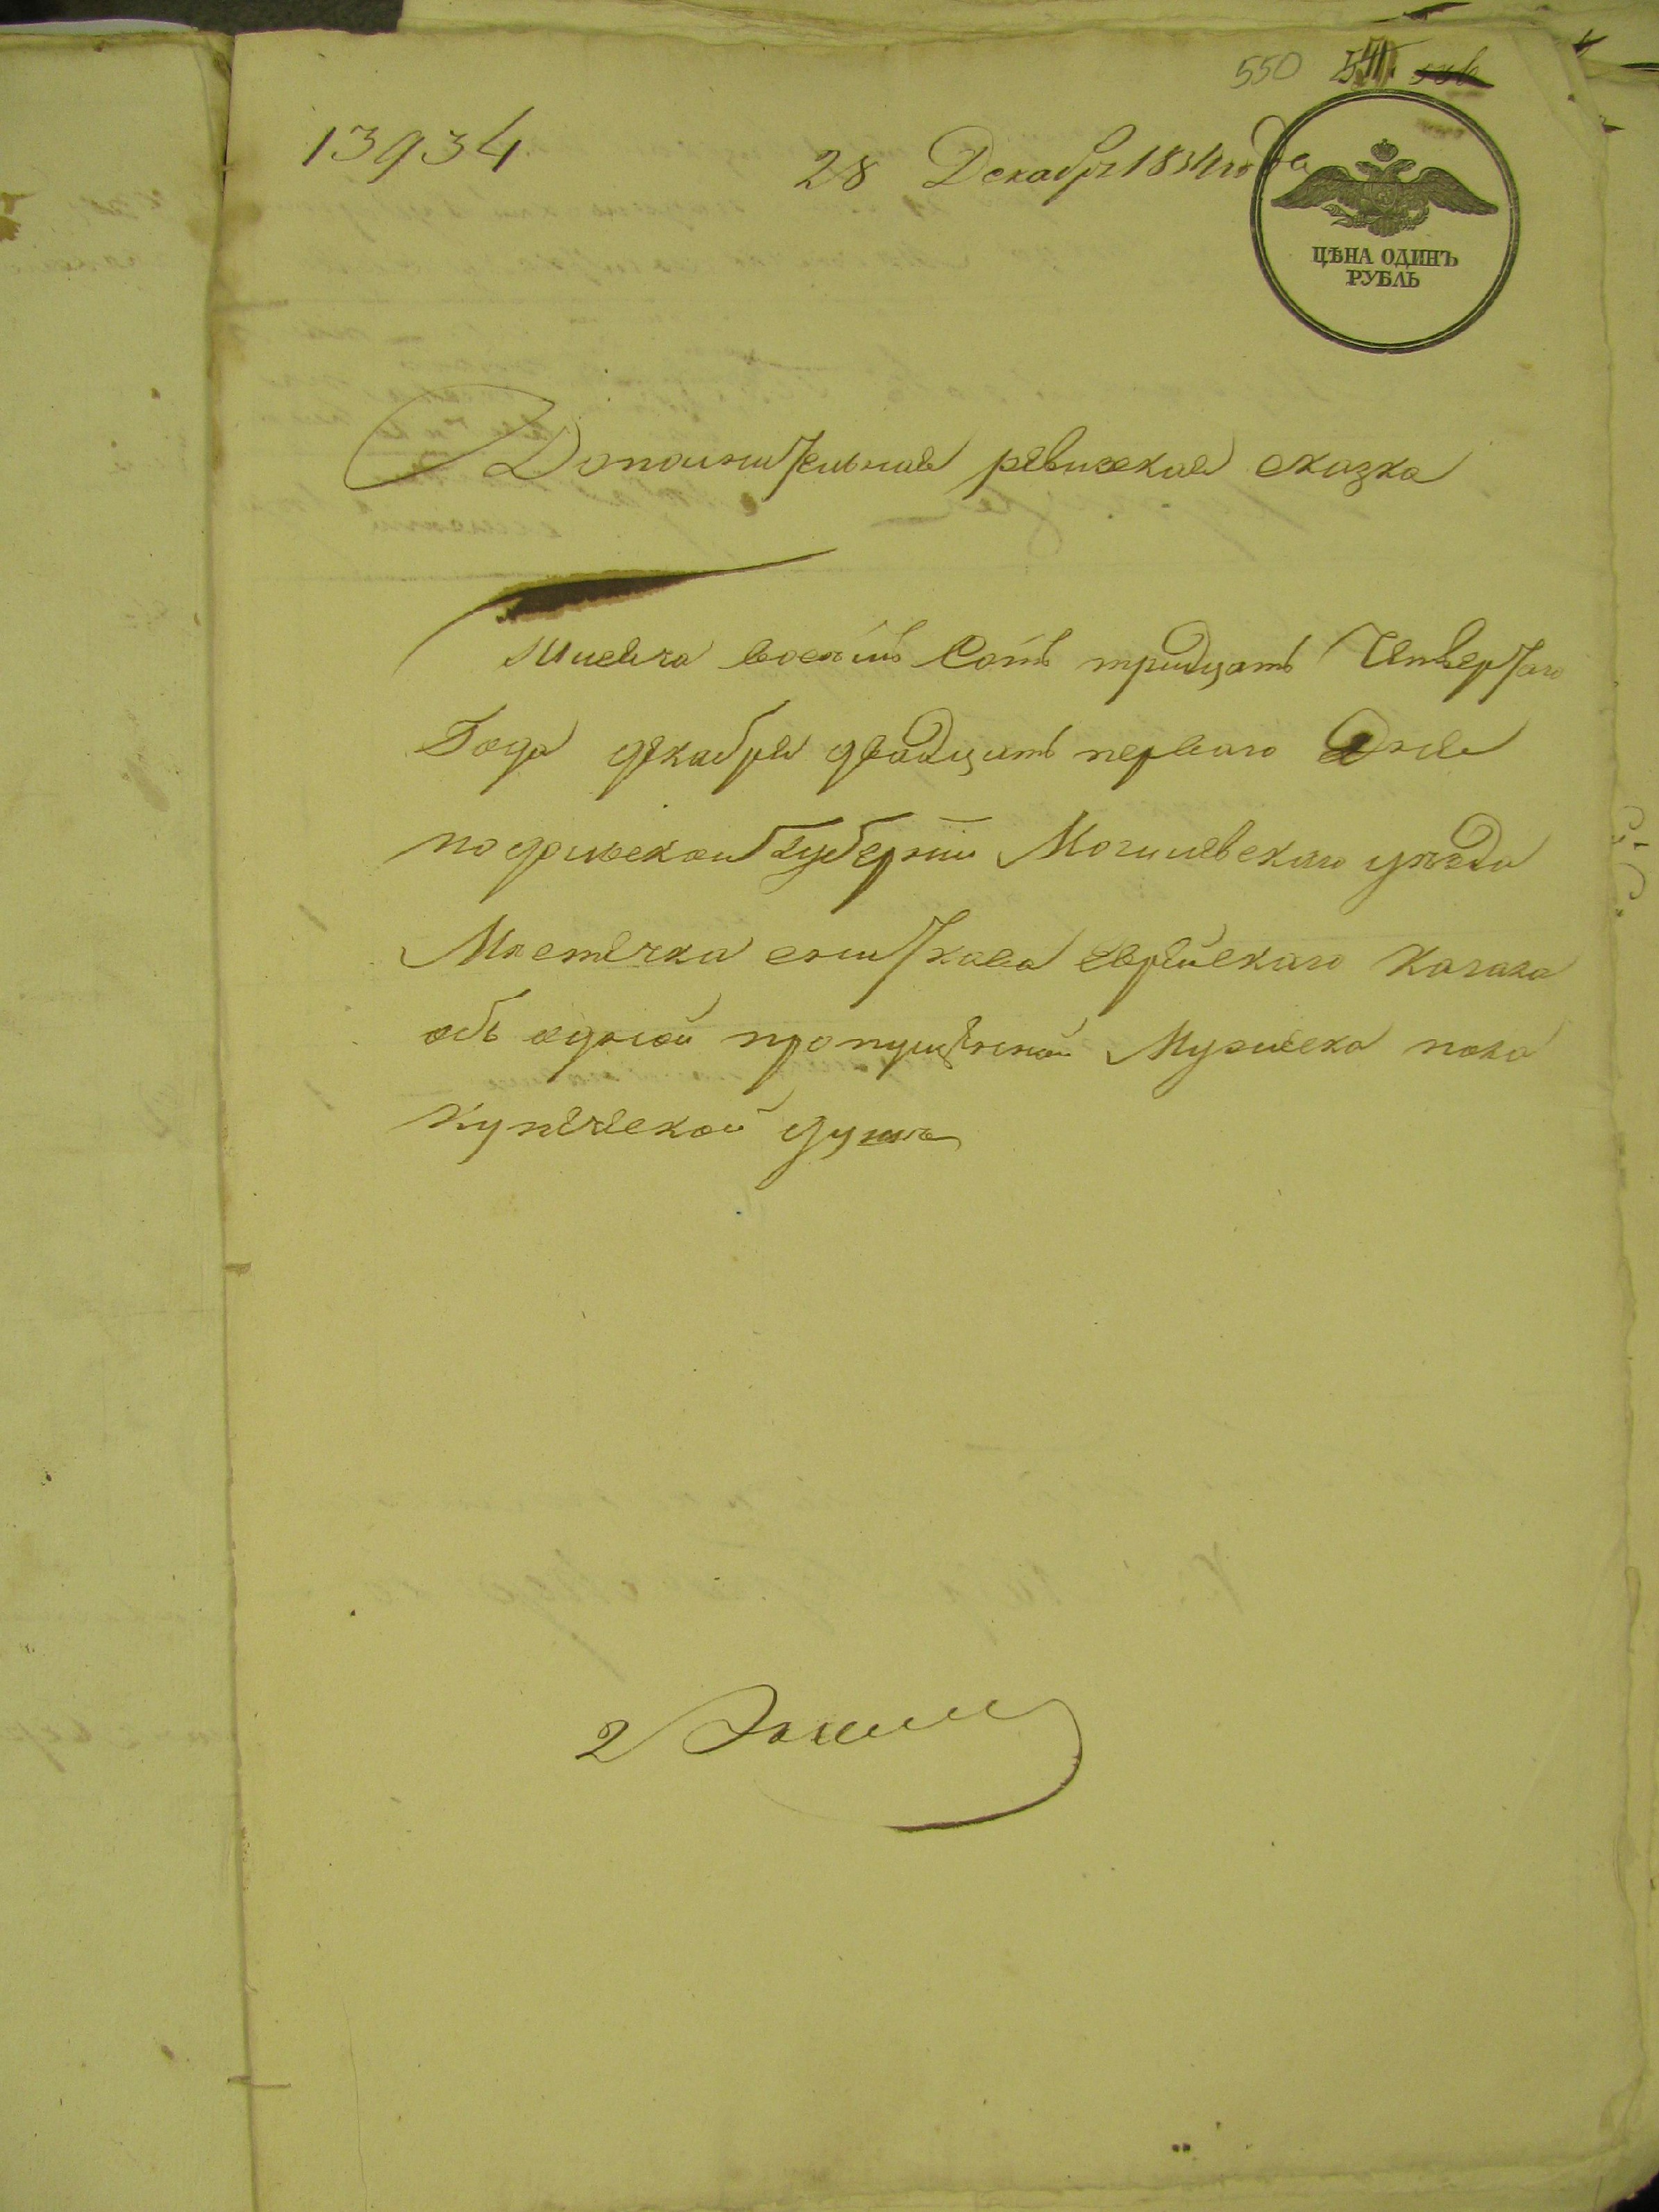 550
13934
28 Декабря 1834 года
ЦѢНА ОДИНЪ
РУБЛЬ
Дополнительная ревизская сказка
Тысеча восемь Сотъ тридцать Четвертаго
Года декабря двадцать перваго Дня
подольской Губернии Могилевскаго уезда
Местечка сниткова еврейскаго Кагала
объ одной пропущенной Мужеска пола
Купеческой душе
2